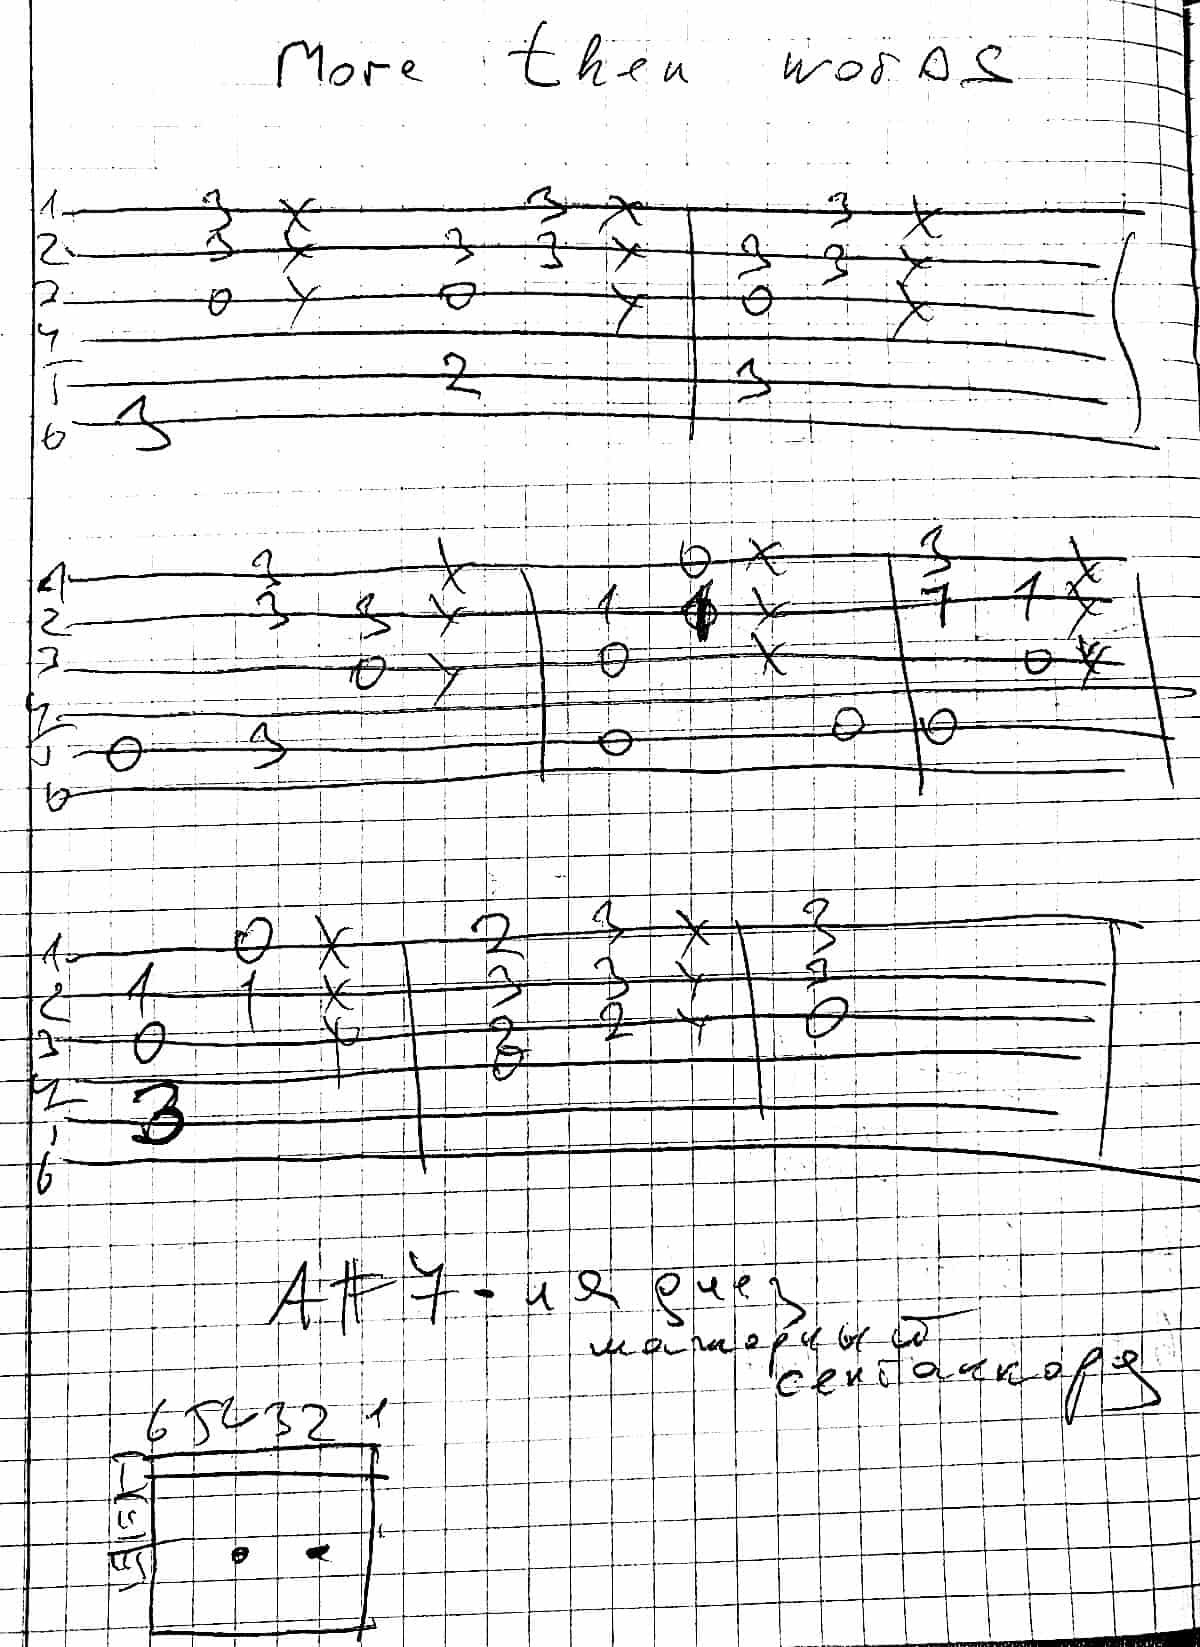 More then words
1 3 X 3 X 3 X
2 3 X 3 3 X 3 3 X
3 0 X 0 X 0 X
4
5 2 3
6 3
1 3 X 0 X 3 X
2 3 3 X 1 1 X 1 1 X
3 0 X 0 X 0 X
4
5 0 3 0 0 0
6
1 0 X 2 3 X 3
2 1 1 X 3 3 X 3
3 0 X 2 2 X 0
4 0
5 3
6
A#7 - ля диез
мажорный
септаккорд
6 5 4 3 2 1
I
II
III